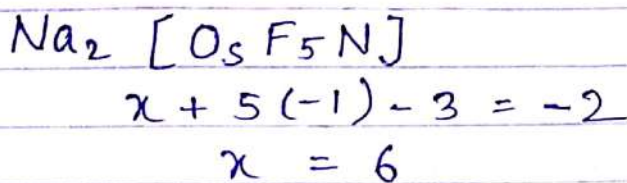 Na₂ [OsF₅N]
x + 5(-1) - 3 = -2
x = 6